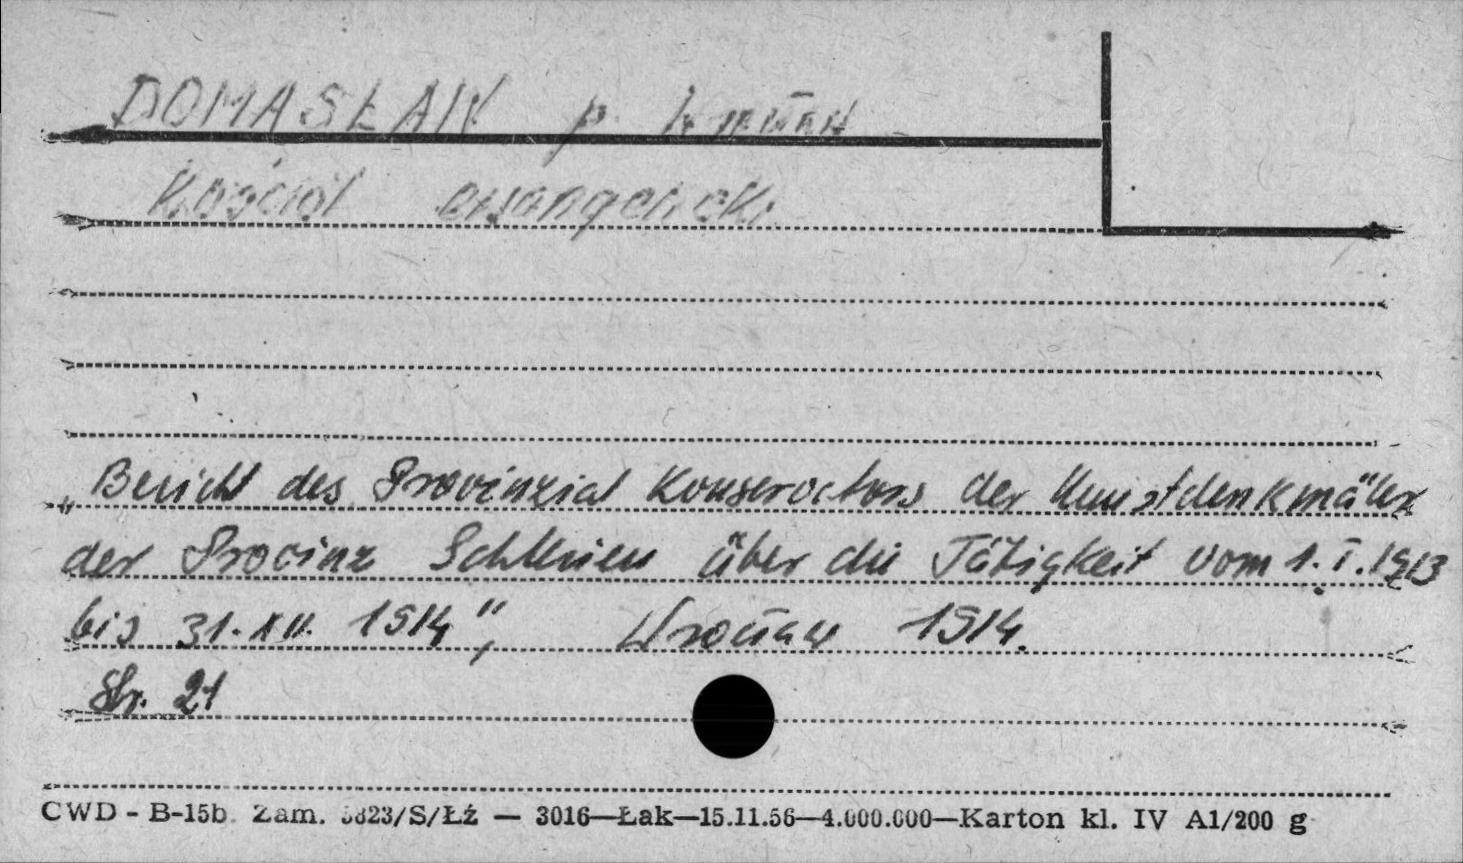 DOMASŁAW p. Wrocław
Kościół ewangelicki
"Bericht des Provinzial Konservators der Kunstdenkmäler
der Provinz Schlesien über die Tätigkeit vom 1.I.1913
bis 31.XII.1914", Wrocław 1914.
Str. 21
CWD - B-15b Zam. 5823/S/Łź — 3016—Łak—15.11.56—4.000.000—Karton kl. IV A1/200 g